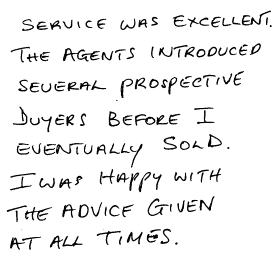 SERVICE WAS EXCELLENT.
THE AGENTS INTRODUCED
SEVERAL PROSPECTIVE
BUYERS BEFORE I
EVENTUALLY SOLD.
I WAS HAPPY WITH
THE ADVICE GIVEN
AT ALL TIMES.